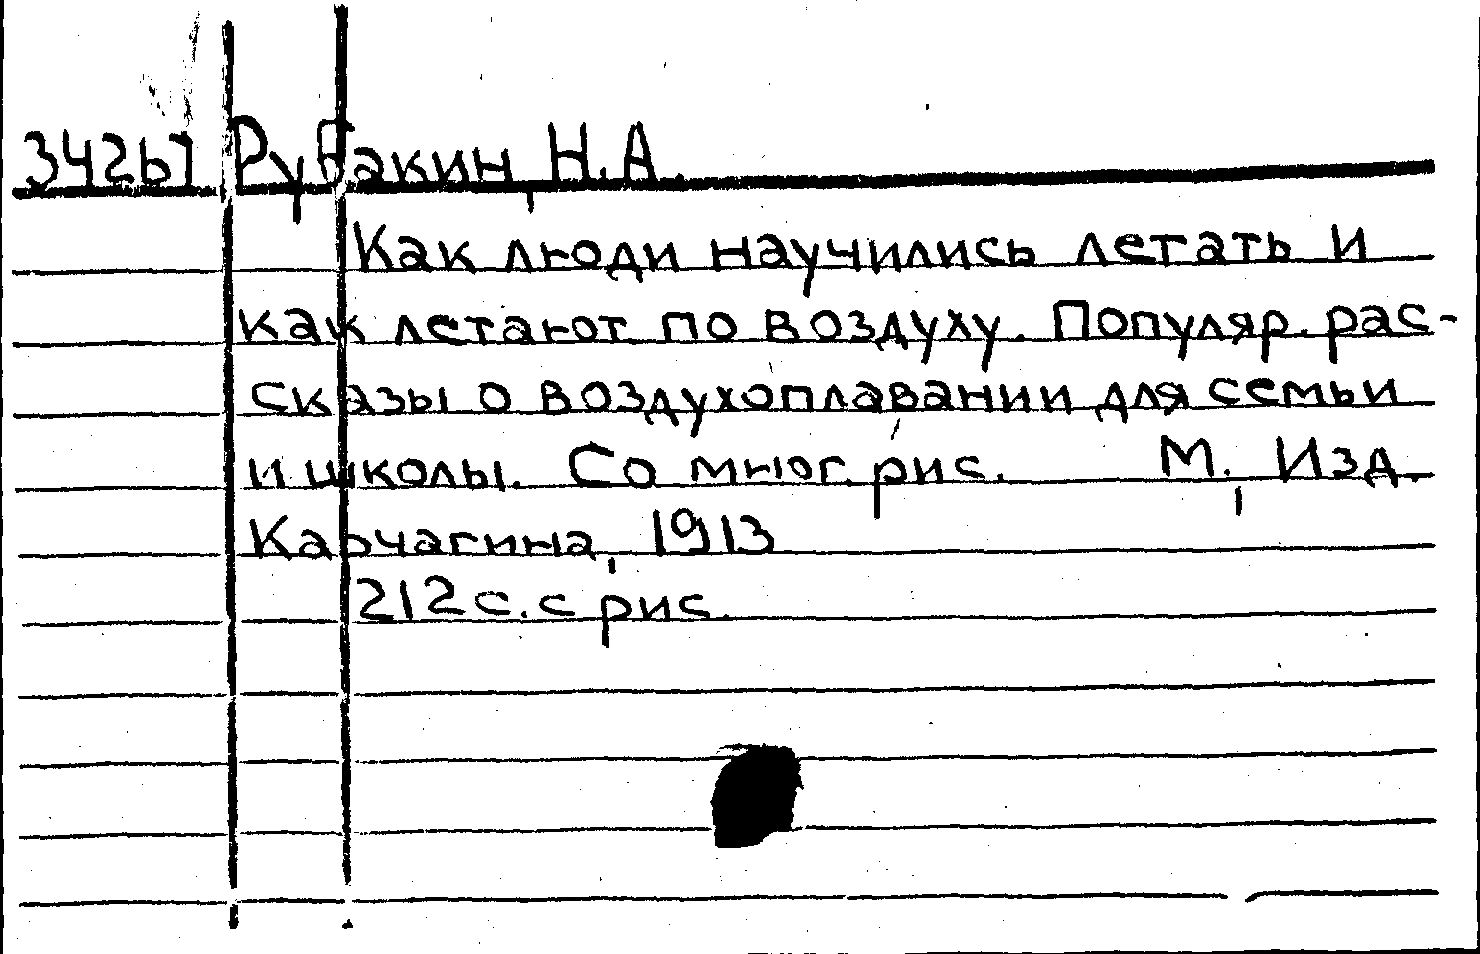 34261 Рубакин, Н.А.
Как люди научились летать и
как летают по воздуху. Популяр. рас-
сказы о воздухоплавании для семьи
и школы. Со мног. рис. М., Изд.
Карчагина, 1913
212 с. с рис.